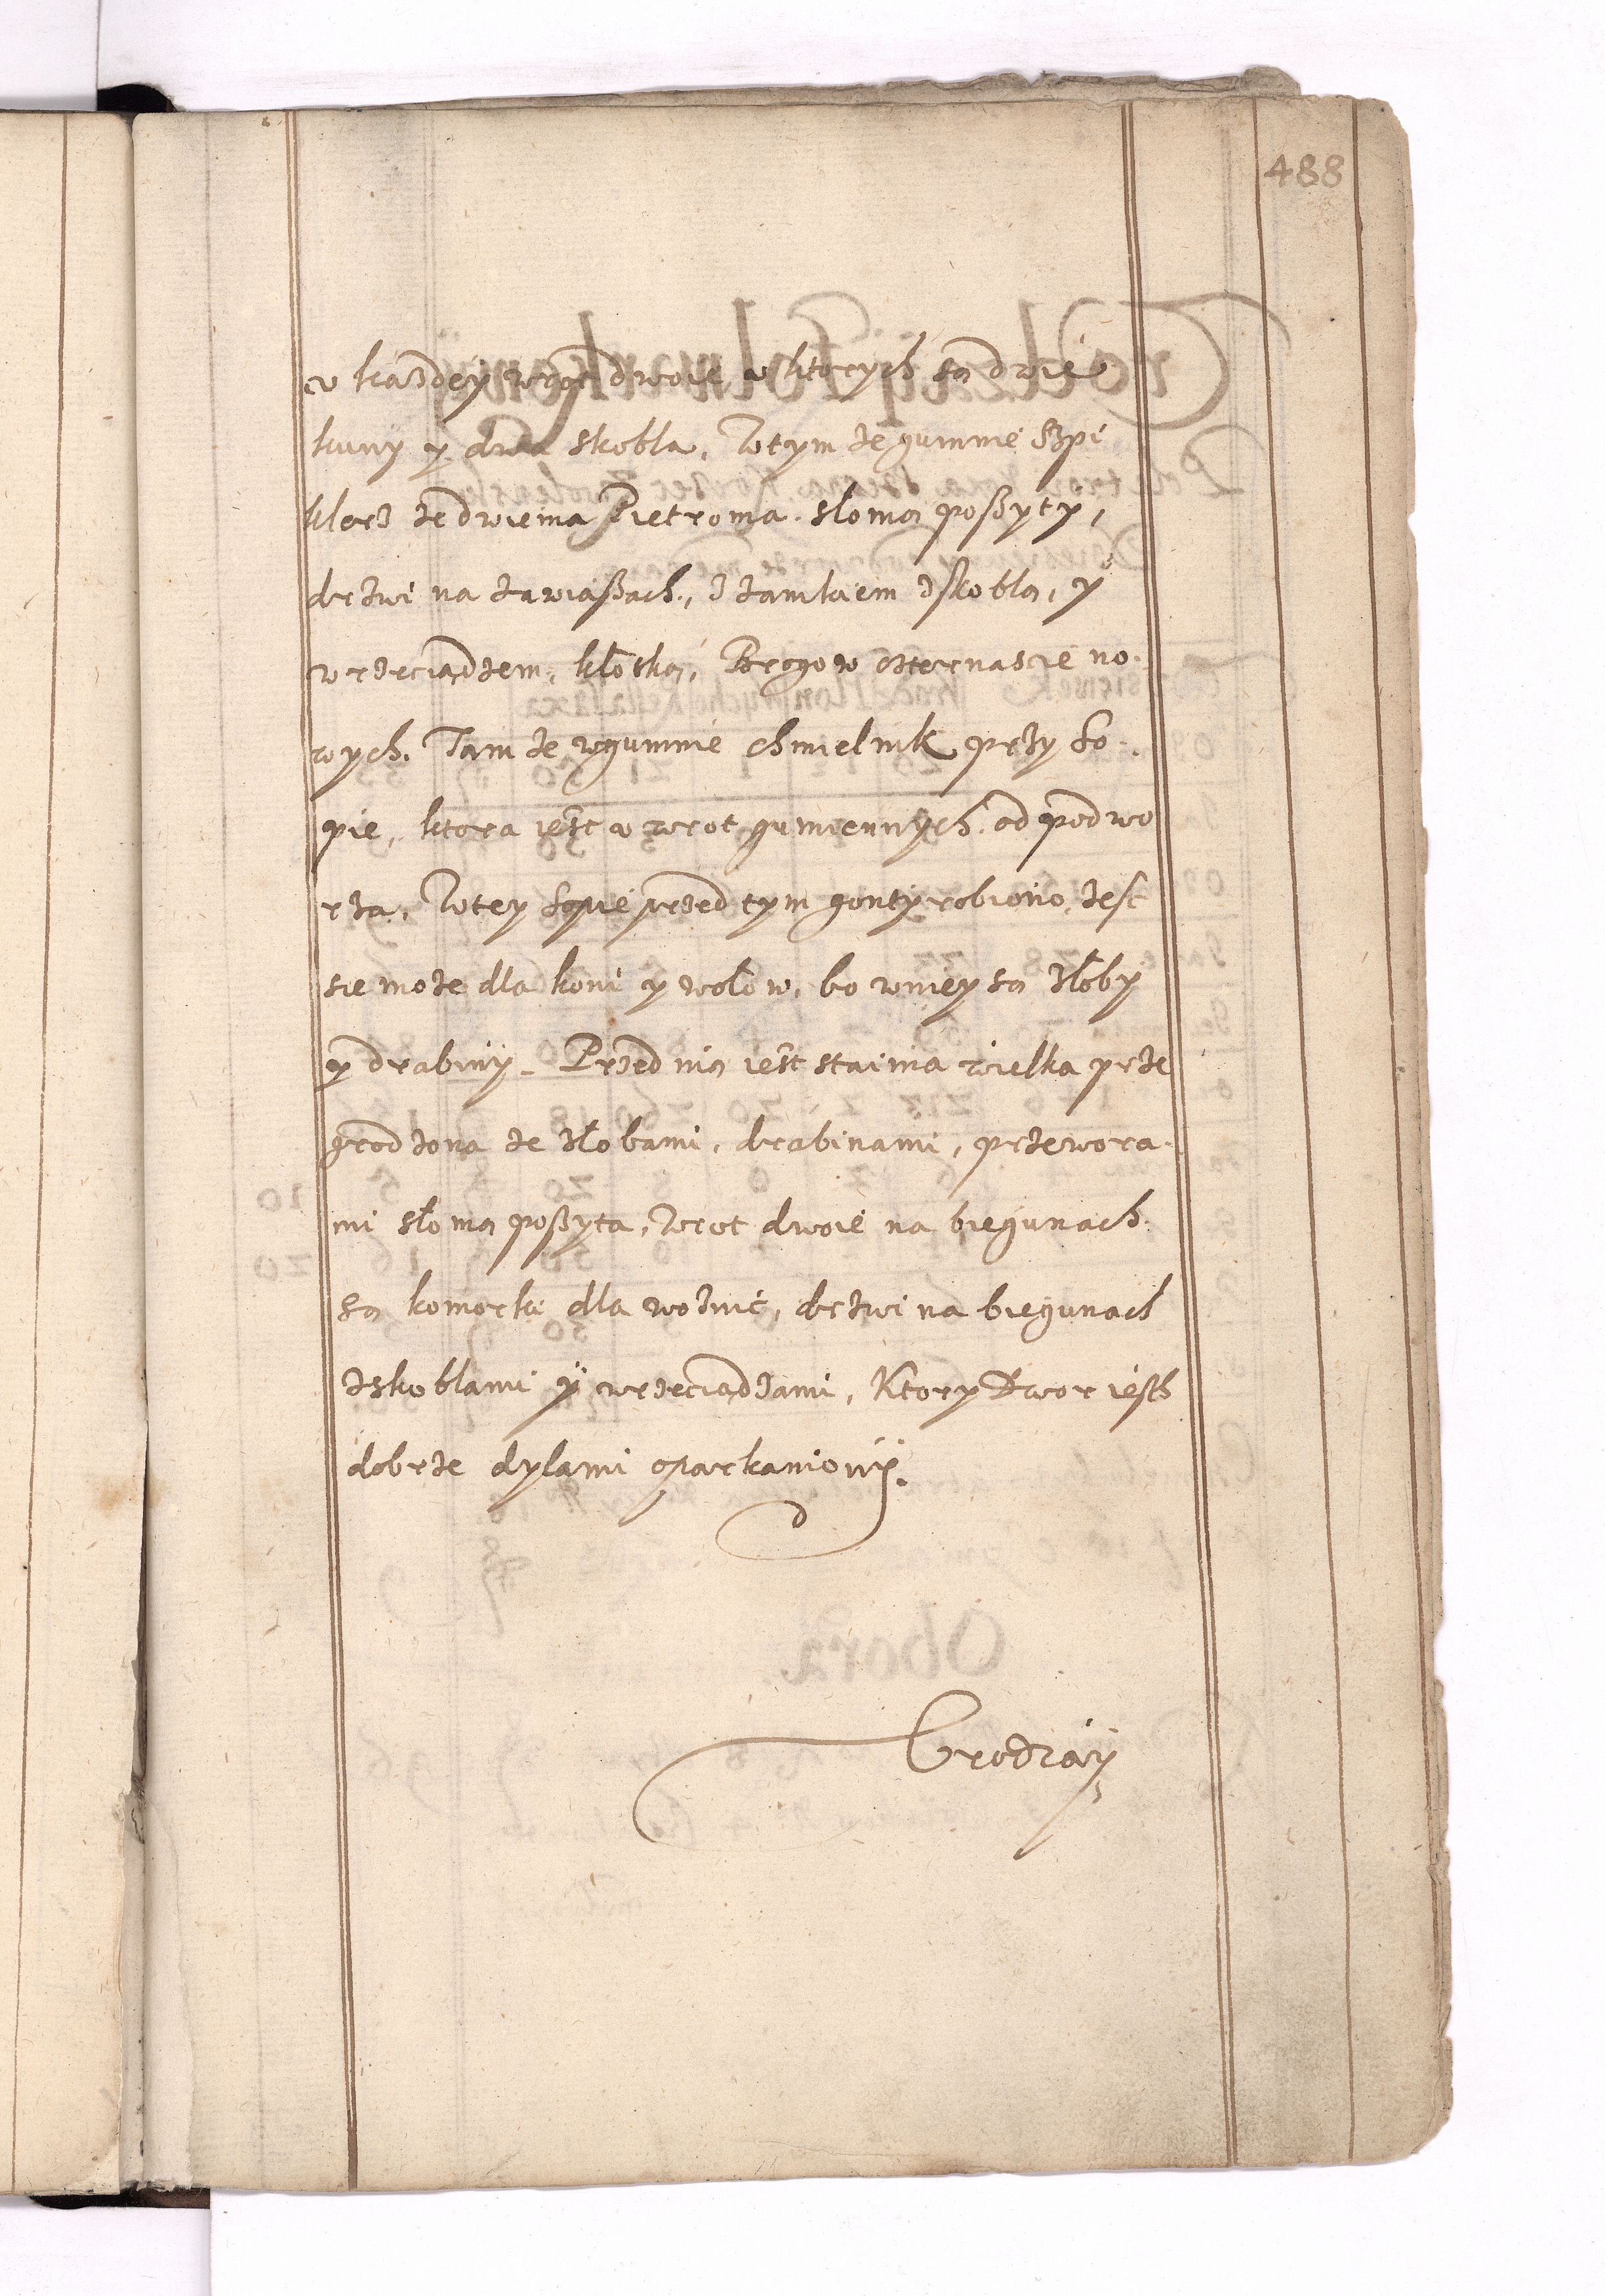 488
v każdey wrot dwoie, v ktorych są dwie
kuny y dwa skobla. Wtym że gumnie Szpi
klerz ze dwiema Pietroma. słomą poszyty,
drzwi na zawiaszach, z zamkiem zskoblą, y
wrzeciądzem, kłotką, Brogow czternascie no-
wych. Tam że wgumnie chmielnik przy So-
pie, ktora iest v wrot gumiennych. od podwo
rza. Wtey Sopie przed tym gonty robiono, zesc
sie może dla koni y wołow, bo wniey są żłoby
y drabiny. Przed nią iest stainia wielka prze
grodzona ze żłobami, drabinami, przewora-
mi słomą poszyta. Wrot dwoie na biegunach.
są komorki dla woznic, drzwi na biegunach
zskoblami y wrzeciądzami, Ktory Dwor iesth
dobrze dylami oparkaniony.
Vrodzaÿ